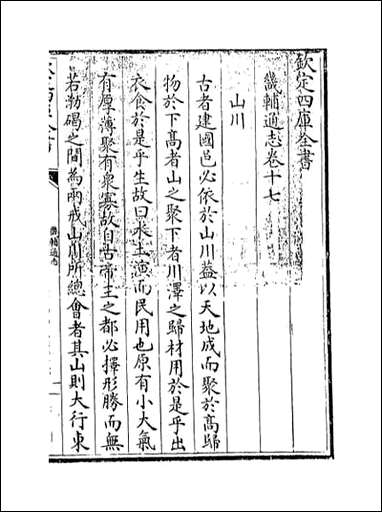 欽定四庫全書
畿輔通志卷十七
山川
古者建國邑必依於山川蓋以天地成而聚於高歸
物於下高者山之聚下者川澤之歸材用於是乎出
衣食於是乎生故曰水土演而民用也原有小大氣
有厚薄聚有衆寡故自古帝王之都必擇形勝而無
若渤碣之間為兩戒山川所總會者其山則大行東
畿輔通志